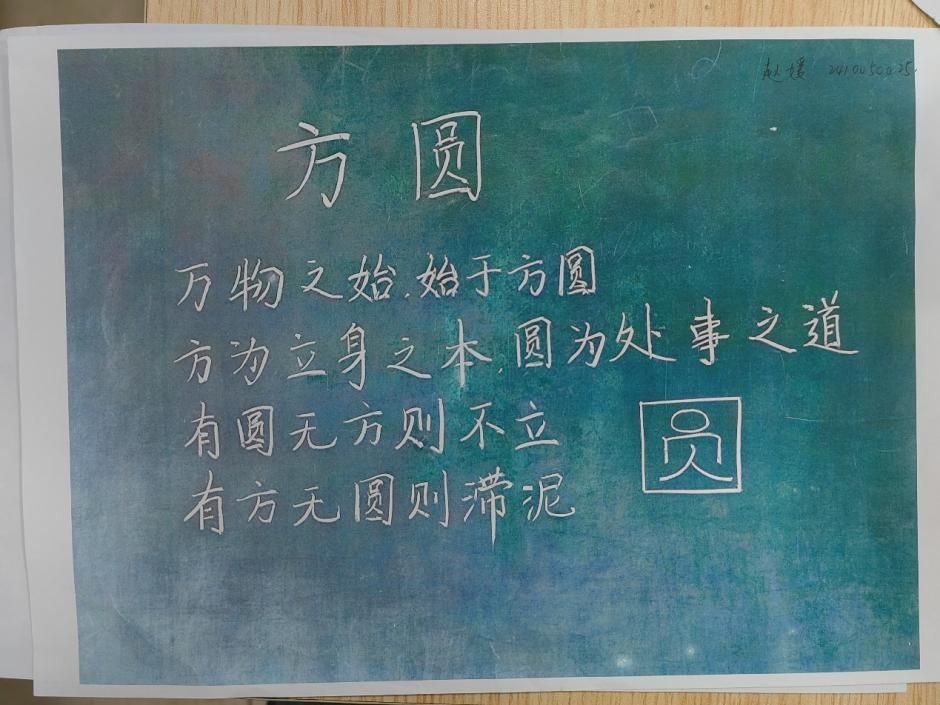 赵媛 2410050025
方圆
万物之始,始于方圆
方为立身之本,圆为处事之道
有圆无方则不立
有方无圆则滞泥
圆